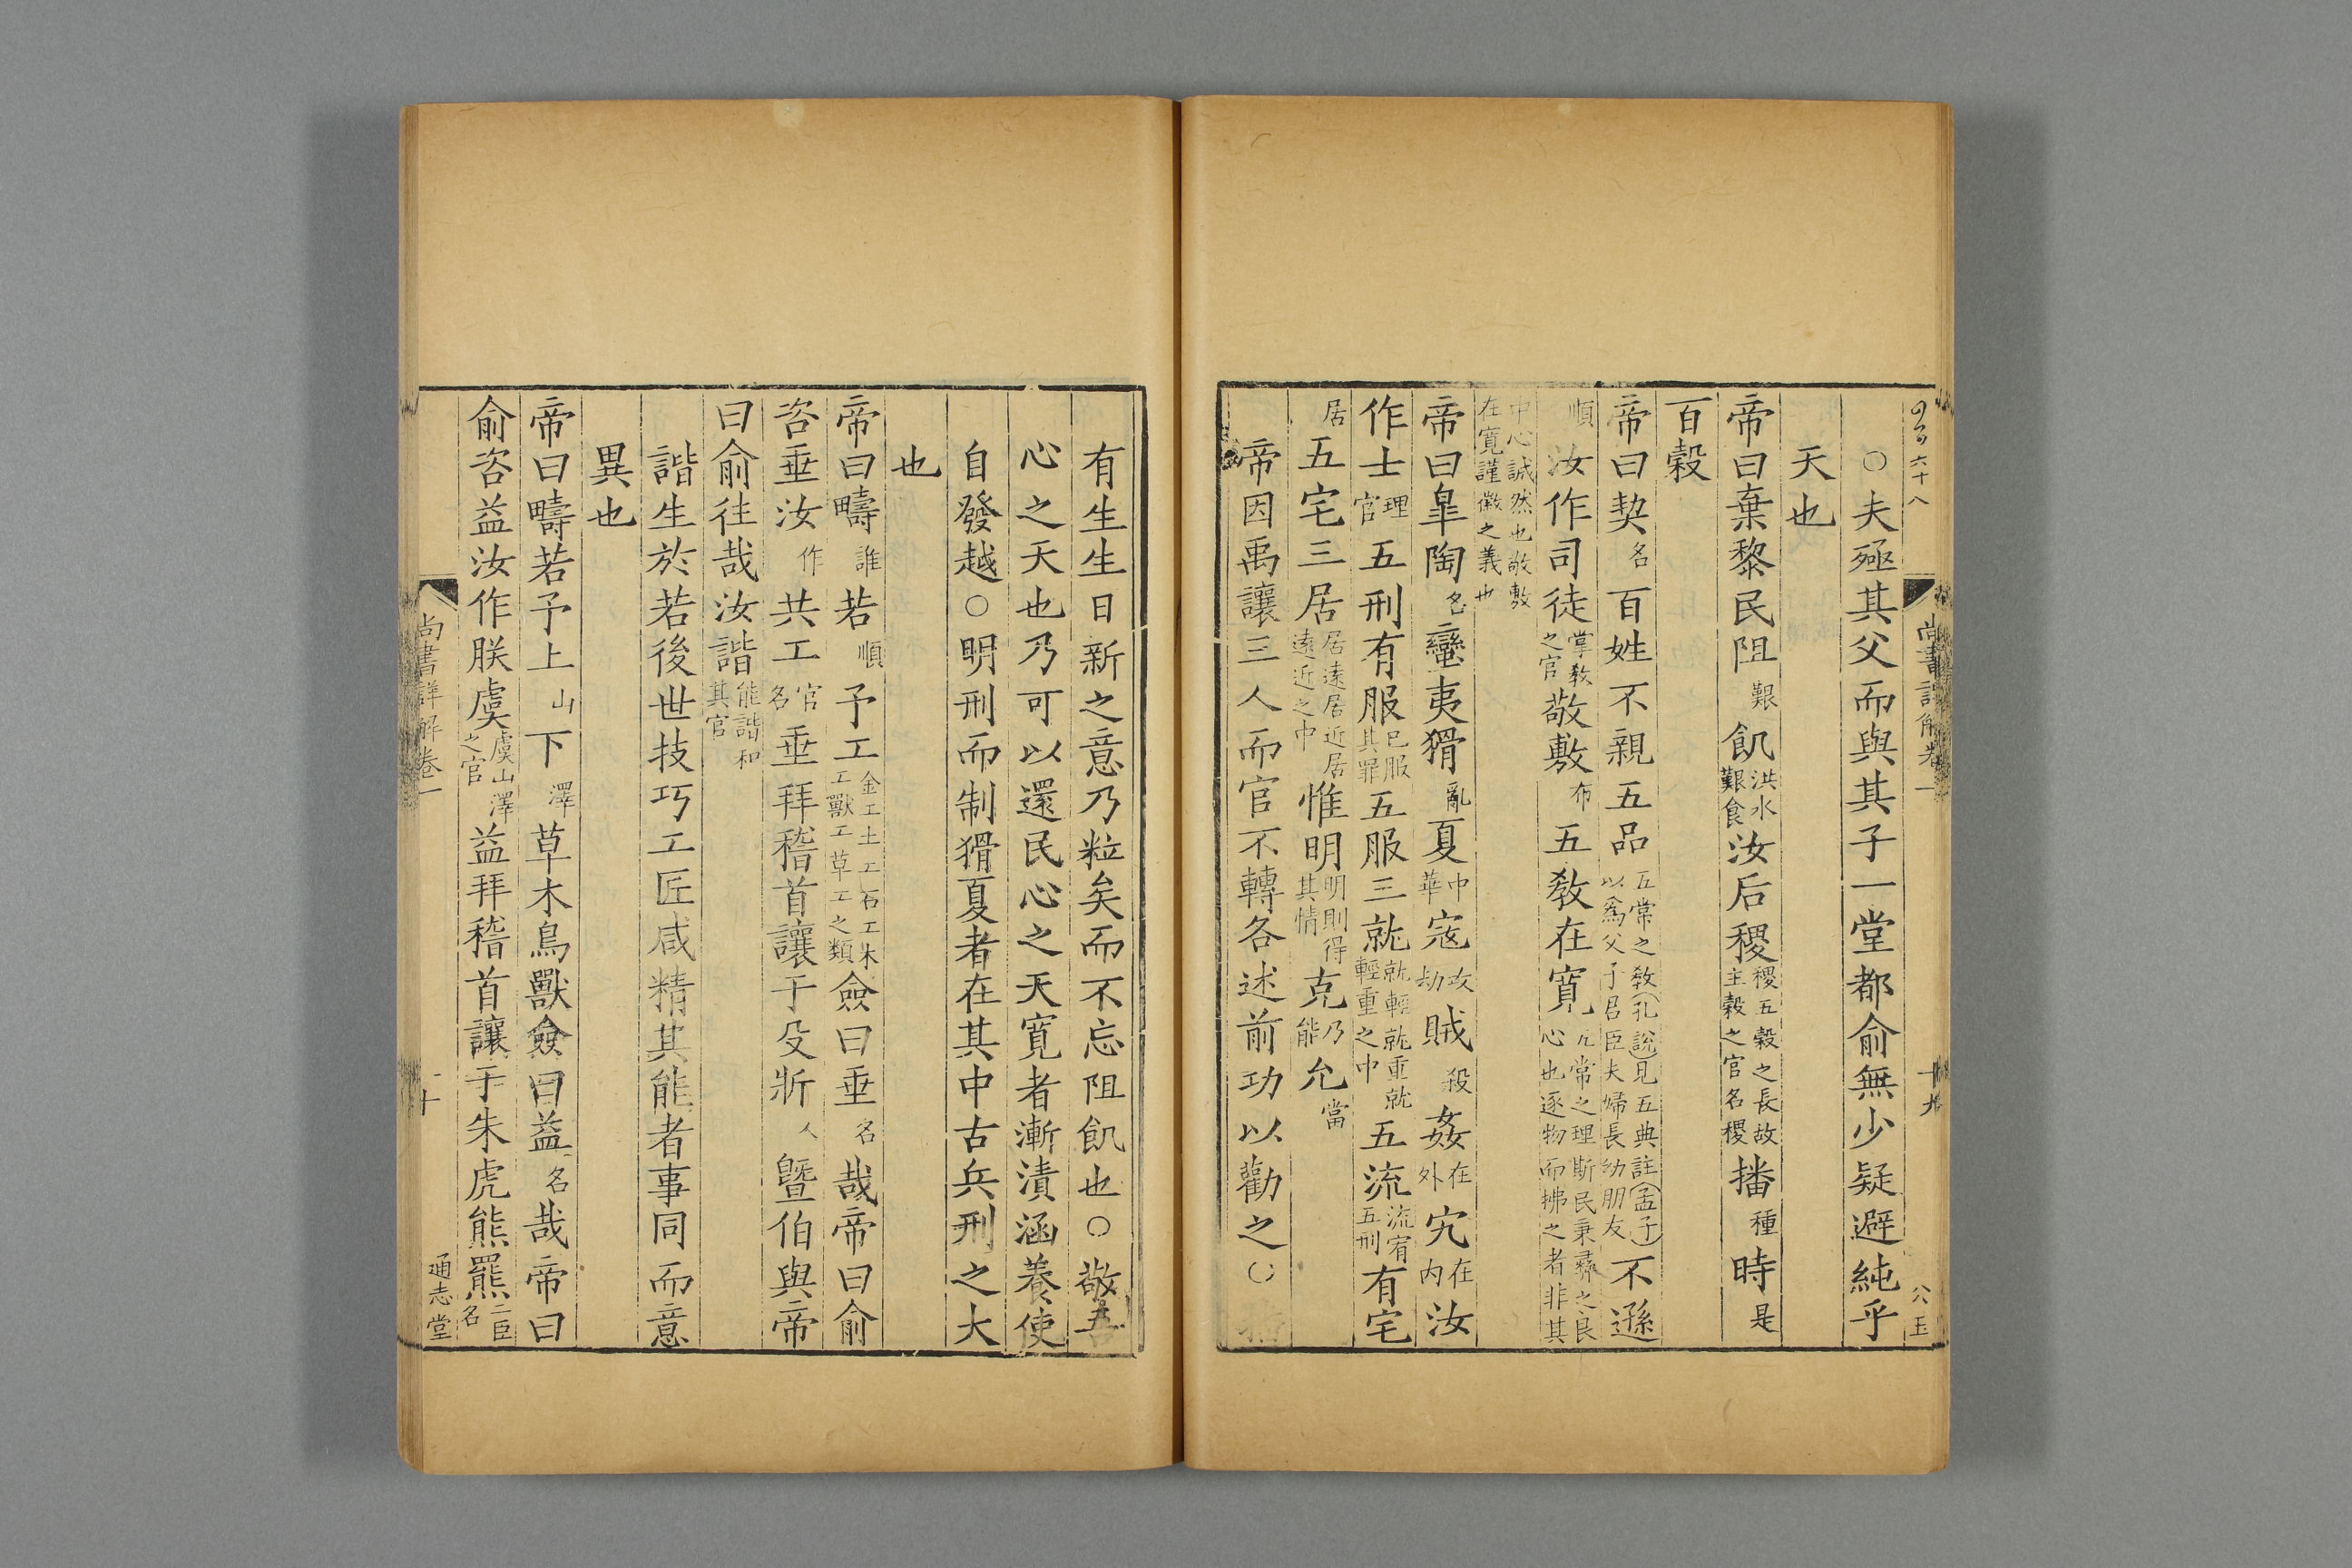 六十八 尚書詳解卷一 十九 公玉
○夫殛其父而與其子一堂都俞無少疑避純乎
天也
帝曰棄黎民阻艱飢洪水艱食汝后稷稷五穀之長故主穀之官名稷播種時是
百穀
帝曰契名百姓不親五品五常之教孔說見五典註孟子以爲父子君臣夫婦長幼朋友不遜
順汝作司徒掌教之官敬敷布五教在寬凡常之理斯民秉彝之良心也逐物而拂之者非其
中心誠然也敬敷在寬謹徽之義也
帝曰皐陶名蠻夷猾亂夏中華寇攻劫賊殺姦在外宄在內汝
作士理官五刑有服已服其罪五服三就就輕就重就輕重之中五流流宥五刑有宅
居五宅三居居遠居近居遠近之中惟明明則得其情克乃能允當
帝因禹讓三人而官不轉各述前功以勸之○
有生生日新之意乃粒矣而不忘阻飢也○敬五
心之天也乃可以還民心之天寬者漸漬涵養使
自發越○明刑而制猾夏者在其中古兵刑之大
也
帝曰疇誰若順予工金工土工石工木工獸工草工之類僉曰垂名哉帝曰俞
咨垂汝作共工官名垂拜稽首讓于殳斨人曁伯與帝
曰俞往哉汝諧能諧和其官
諧生於若後世技巧工匠咸精其能者事同而意
異也
帝曰疇若予上山下澤草木鳥獸僉曰益名哉帝曰
俞咨益汝作朕虞虞山澤之官益拜稽首讓于朱虎熊羆二臣名
尚書詳解卷一 二十 通志堂